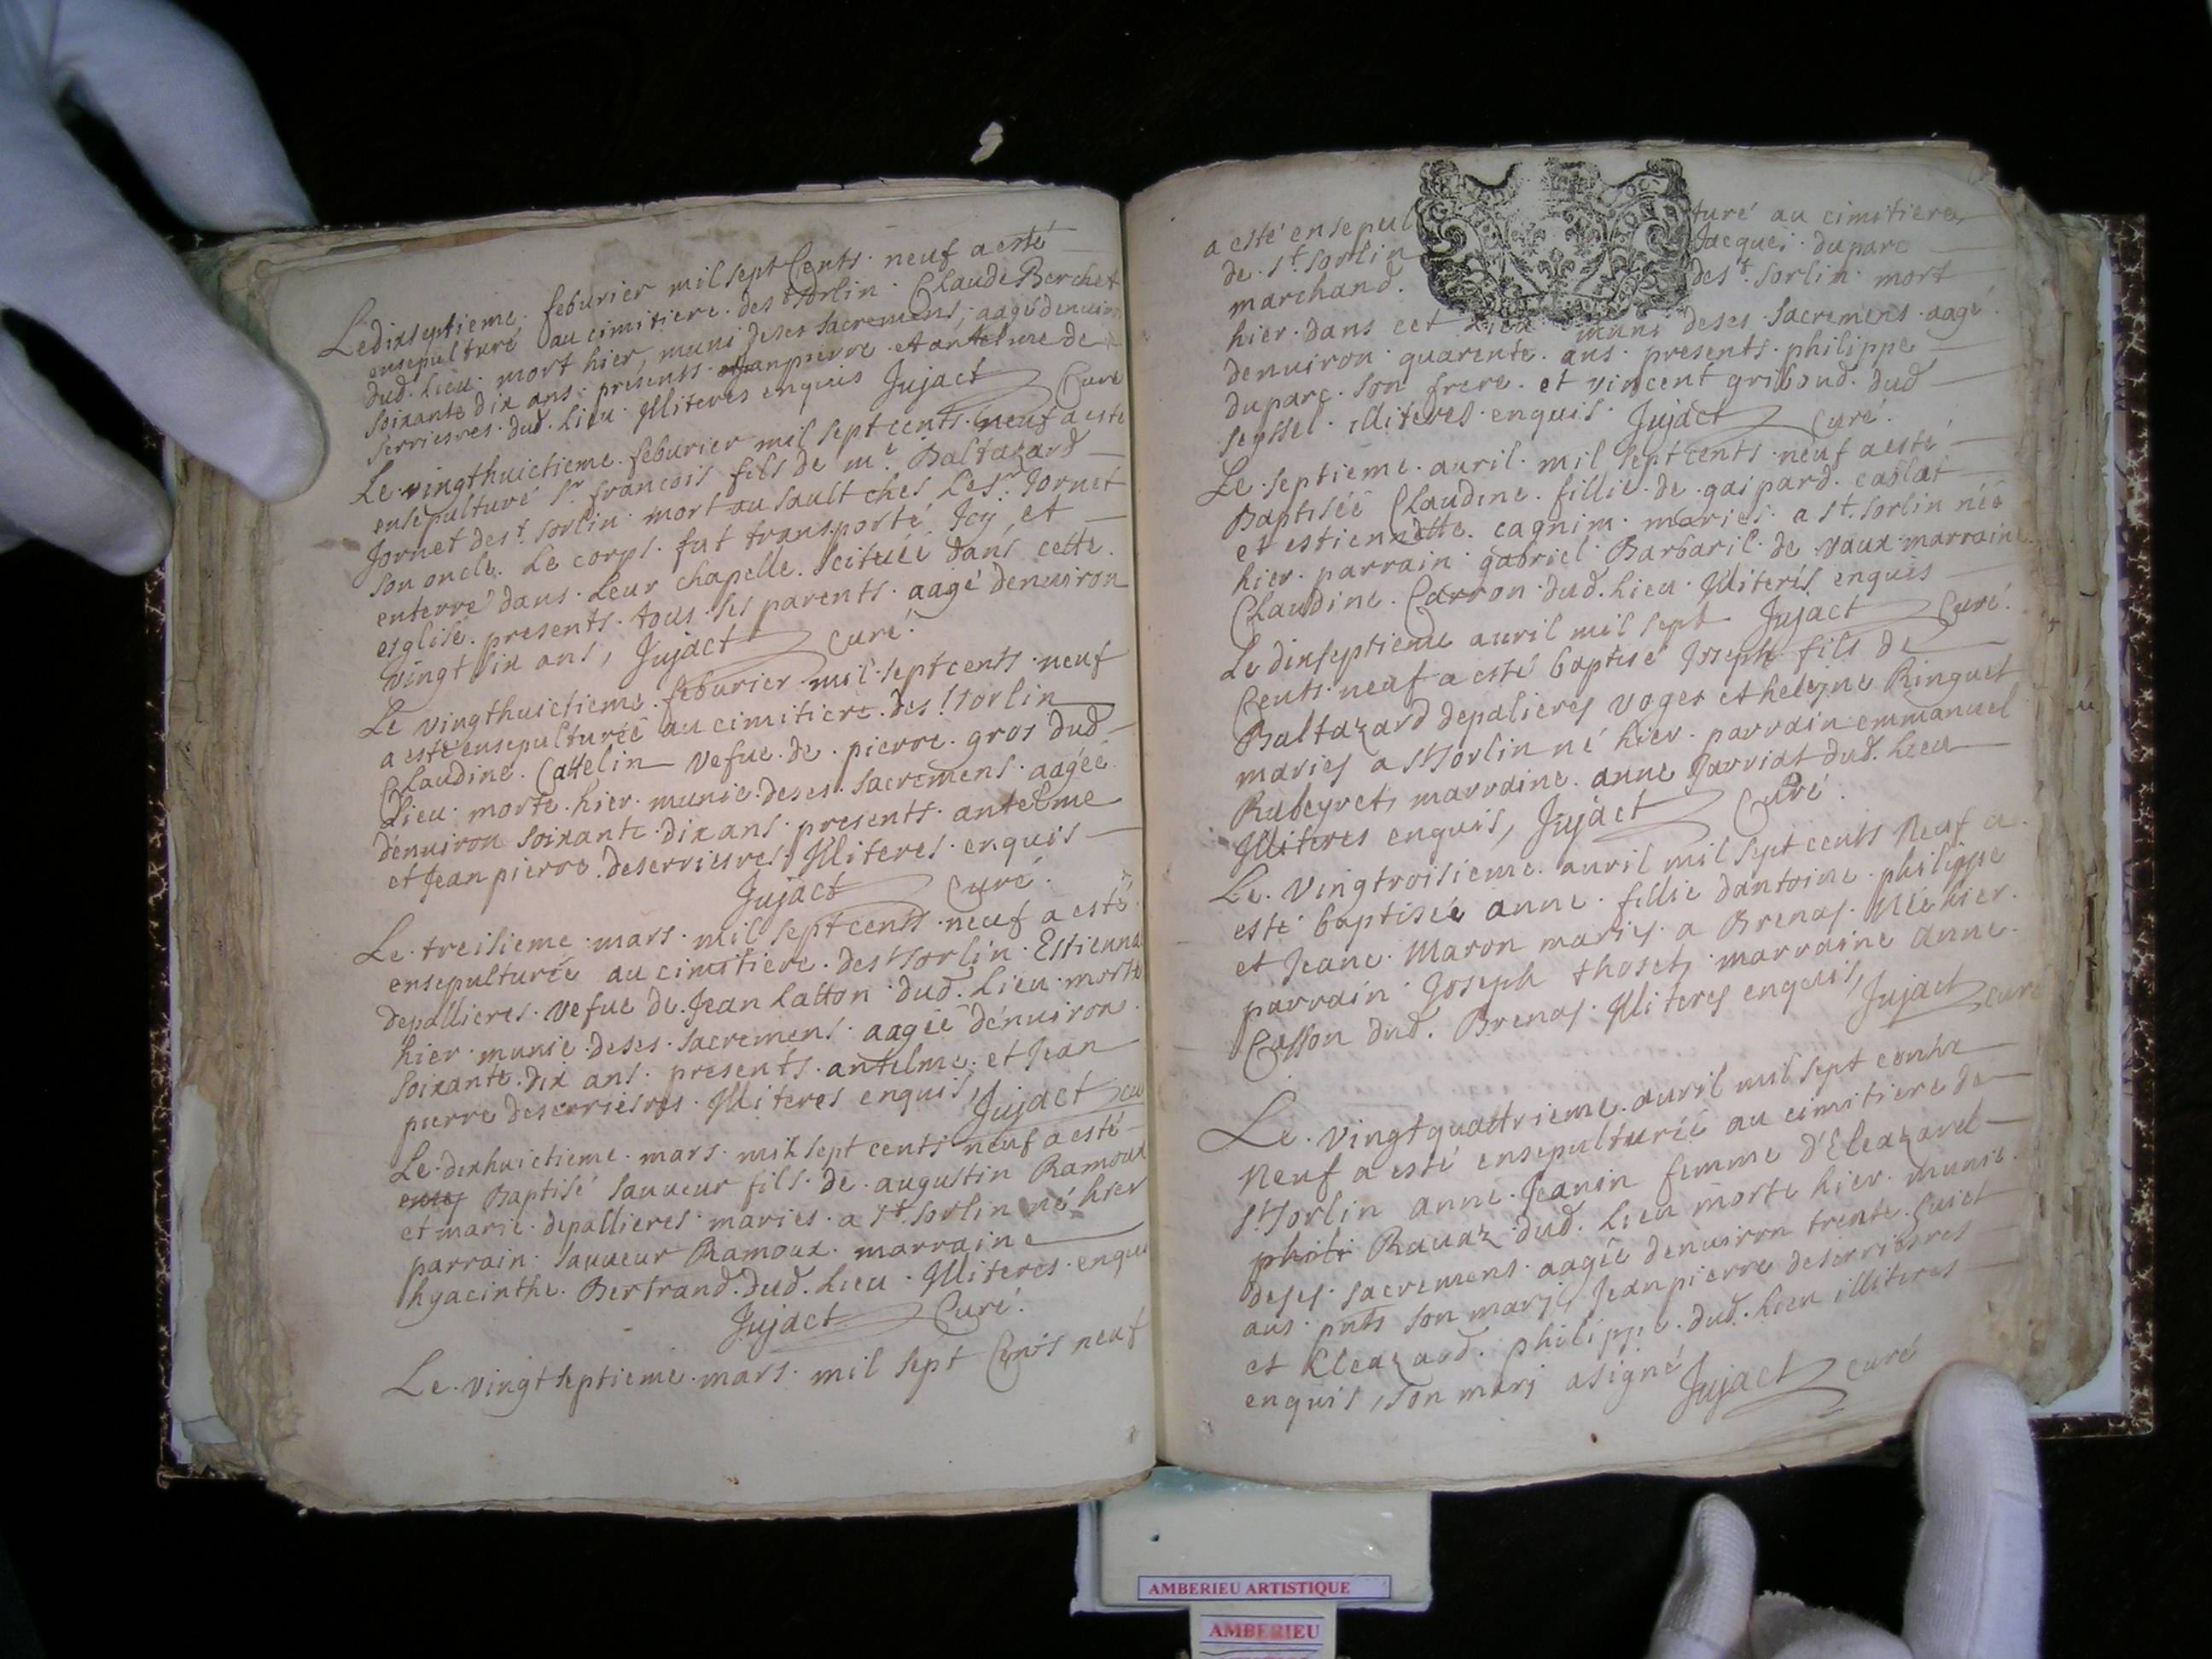 Le dixseptieme. feburier mil sept Cents. neuf a esté
ensepulturé au cimitiere. des.t Sorlin. Claude Berchet
dud. lieu. mort hier, muni deses sacremens, aagé denuiron
soixante dix ans. presents. Jeanpierre et antelme de
serriesres. dud. lieu. Illiteres enquis Jujact Curé
Le. vingthuictieme. feburier mil sept cents. neuf a esté
ensepulturé Sr. francois fils de me. Baltazard
Jornet des.t Sorlin. mort au sault ches Le Sr. Jornet
son oncle. Le corps. fut transporté. Icy, et
enterré dans. Leur chapelle. scituéé dans cette.
esglise. presents. tous. ses parents. aagé denuiron
vingt six ans, Jujact curé.
Le vingthuictieme. feburier. mil. septcents. neuf
a esté ensepulturéé au cimitiere. des.t Sorlin
Claudine. Cattelin vefue. de. pierre. gros dud
Lieu. morte. hier. munie. deses. sacremens. aagéé.
dénuiron soixante. dix ans. presents. antelme
et Jean pierre. deserriesres. Illiteres. enquis
Jujact Curé.
Le. treisieme. mars. mil septcents. neuf a esté
ensepulturéé au cimitiere. des.t Sorlin. Estienna
depallieres. vefue de. Jean Latton. dud. Lieu. morte
hier. munie. deses. sacremens. aagéé dénuiron.
soixante. dix ans. presents. antelme. et Jean
pierre deserriesres. Illiteres enquis, Jujact cu
Le. dixhuictieme. mars. mil sept cents neuf a esté
Baptisé sauueur fils. de. augustin Ramoux
et marie. depallieres. maries. a St. Sorlin né hier
parrain. sauueur Ramoux. marraine
hyacinthe. Bertrand. dud. lieu. Illiteres. enquis
Jujact Curé.
Le. vingtseptieme. mars. mil sept Cents neuf
a esté ensepulturé au cimitiere
de. s.t Sorlin Jacques. duparc
marchand. des.t Sorlin. mort
hier. dans cet Lieu muni deses. sacremens. aagé.
denuiron. quarente. ans. presents. philippe
duparc. son frere. et vincent gribond. dud
seyssel. illiteres. enquis. Jujact Curé.
Le. septieme. auril. mil sept cents. neuf a esté
Baptiséé Claudine. fillie. de. gaspard. caslat
et estiennette. cagnim. maries. a St. Sorlin néé
hier. parrain. gabriel. Barbaril. de. vaux. marraine.
Claudine. Carron. dud. lieu. Illiterés enquis
Jujact Curé.
Le dixseptieme auril mil sept
Cents. neuf a esté baptisé Joseph fils de
Baltazard depalieres voger et heleyne Ringuet
maries a St Sorlin né hier. parrain emmanuel
Rubeyret, marraine. anne Jarriat dud. lieu
Illiteres enquis, Jujact Curé.
Le. vingtroisieme. auril mil sept cents Neuf a.
esté baptiséé anne. fillie dantoine. philippe
et Jeane. Maron maries. a Brenas. Néé hier.
parrain. Joseph thoset, marraine anne.
Casson dud. Brenas. Illiteres enquis,
Jujact curé
Le. vingtquattrieme. auril mil sept cents
Neuf a esté ensepulturéé au cimitiere de
St Sorlin anne. Jeanin femme d'Eleazard
Rauaz. dud. Lieu morte hier. munie.
deses. sacremens. aagéé denuiron trente. huict
ans. pnts son marj, Jeanpierre deserriesres
et Eleazard. philippe. dud. lieu illiteres
enquis, son marj asigné
Jujact curé
AMBERIEU ARTISTIQUE
AMBERIEU